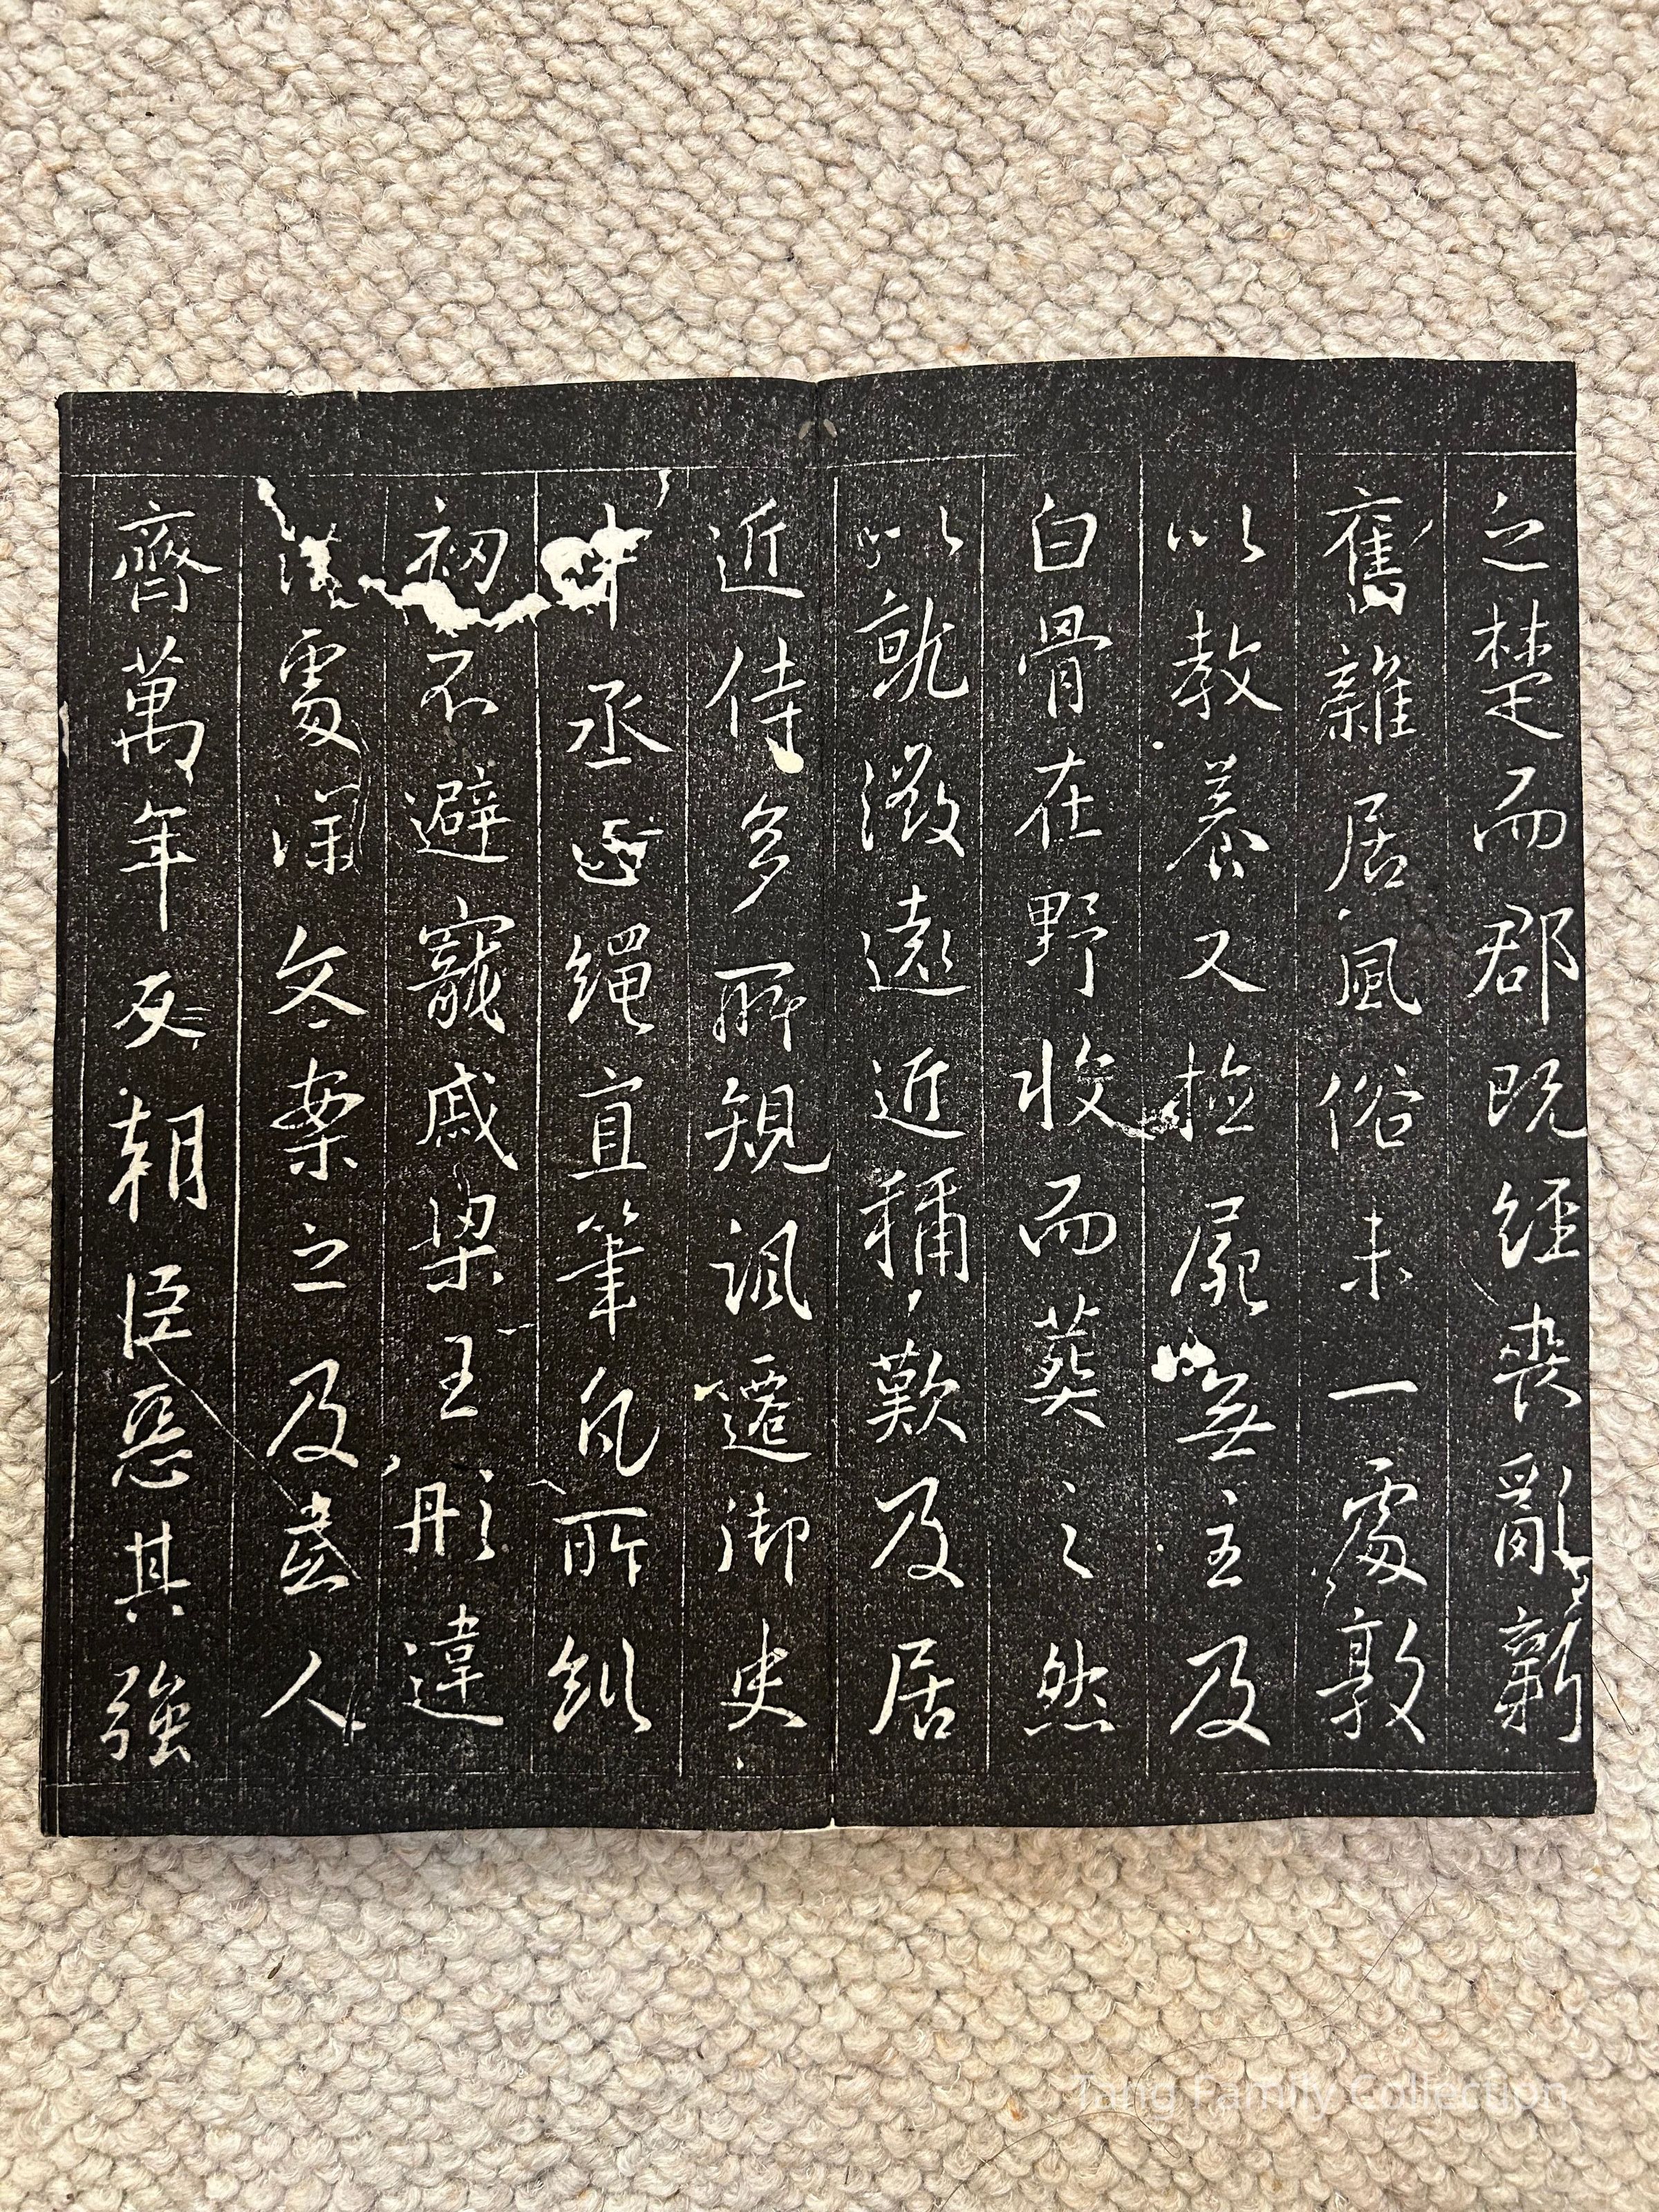 之楚而郡既經喪亂新
舊雜居風俗未一處敦
以教義又檢屍無主及
白骨在野收而葬之然
以就徵遠近稱歎及居
近侍多所規諷遷御史
中丞正繩直筆凡所糺
初不避寵戚梁王肜違
法處深文案之及人
齊萬年反朝臣惡其強
Tang Family Collection